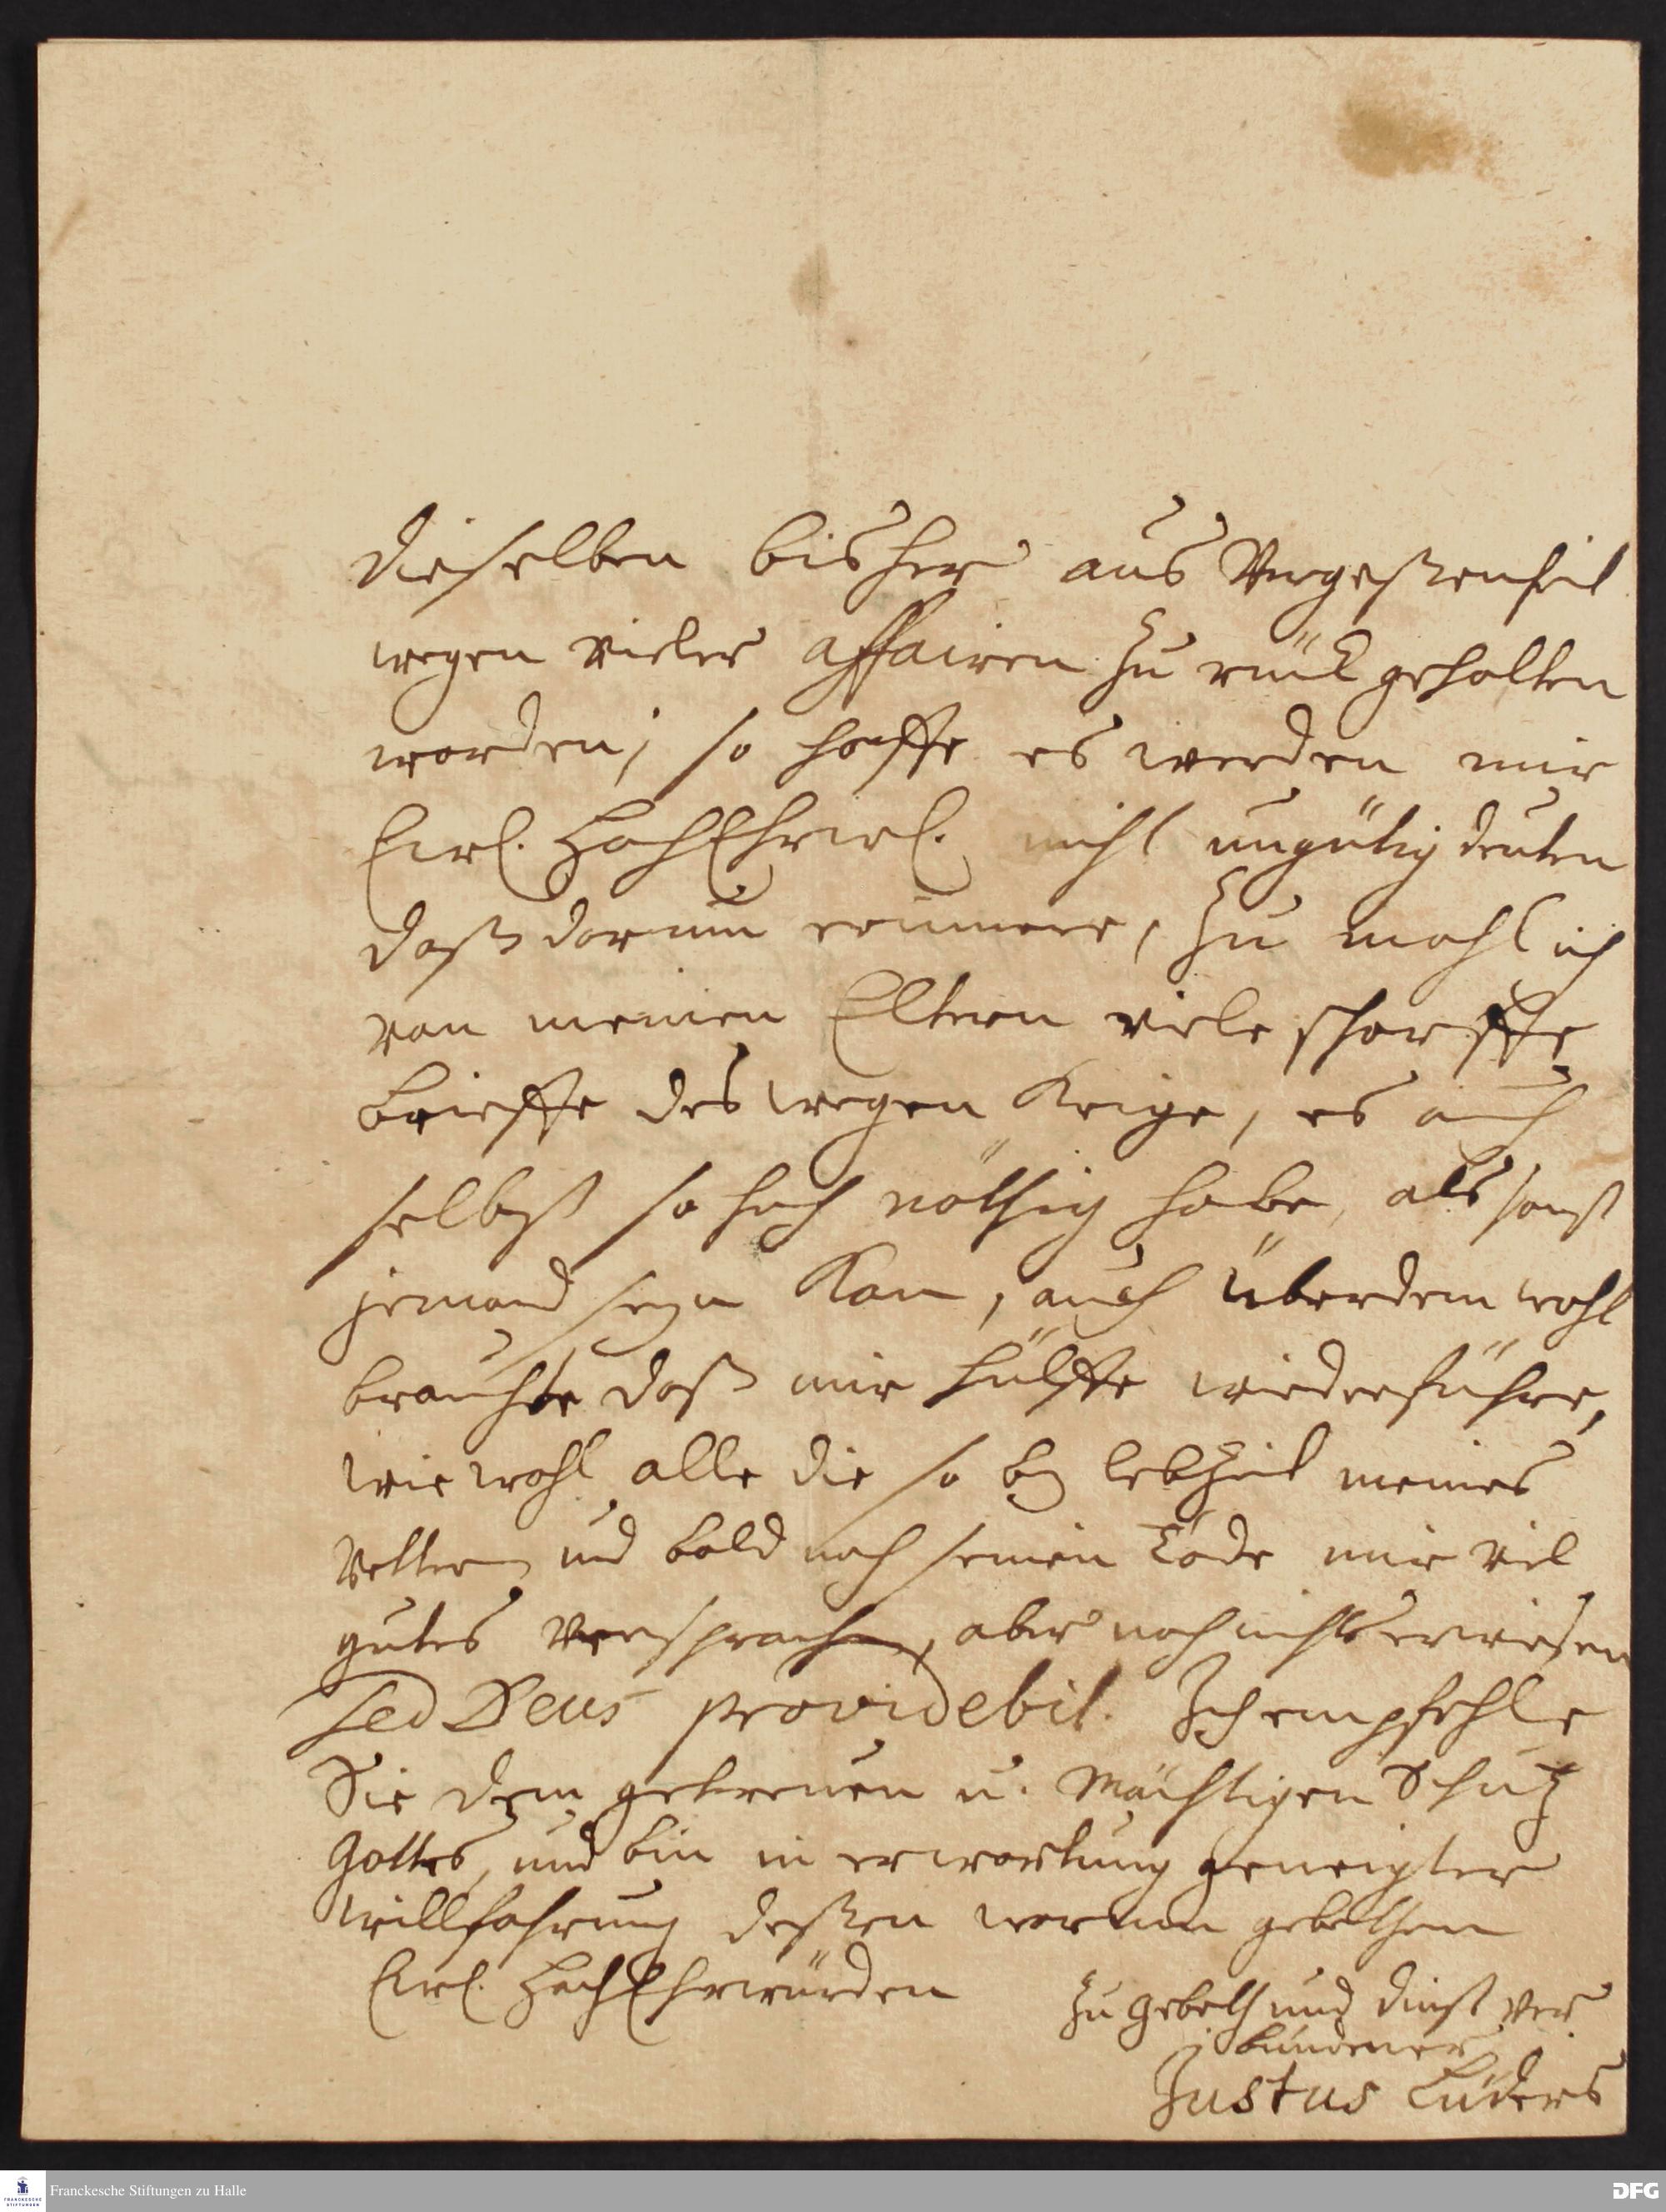 dieselben bisher aus Vergeßenheit
wegen vieler affairen zu rück gehalten
worden; so hoffe es werden mir
Ewl. HochEhrwl. nicht ungütig deuten
daß darum erinnere, zu mahl ich
von meinen Eltern viele scharffe
brieffe deswegen kriege, es auch
selbst so hoch nöthig habe, als sonst
jemand seyn kan, auch überdem wohl
brauchte daß mir hülffe wiederführe,
wie wohl alle die so bey lebzeit meines
Vettern und bald nach seinen Tode mir viel
gutes versprachen, aber noch nichts erwiesen
sed Deus providebit. Ich empfehle
Sie dem getreuen u. Mächtigen Schutz
Gottes, und bin in erwartung geneigter
willfahrung deßen warum gebethen
Ewl. HochEhrwürden
zu gebeth und dinst ver
bundener
Justus Lüders
Franckesche Stiftungen zu Halle
FRANCKESCHE STIFTUNGEN
DFG